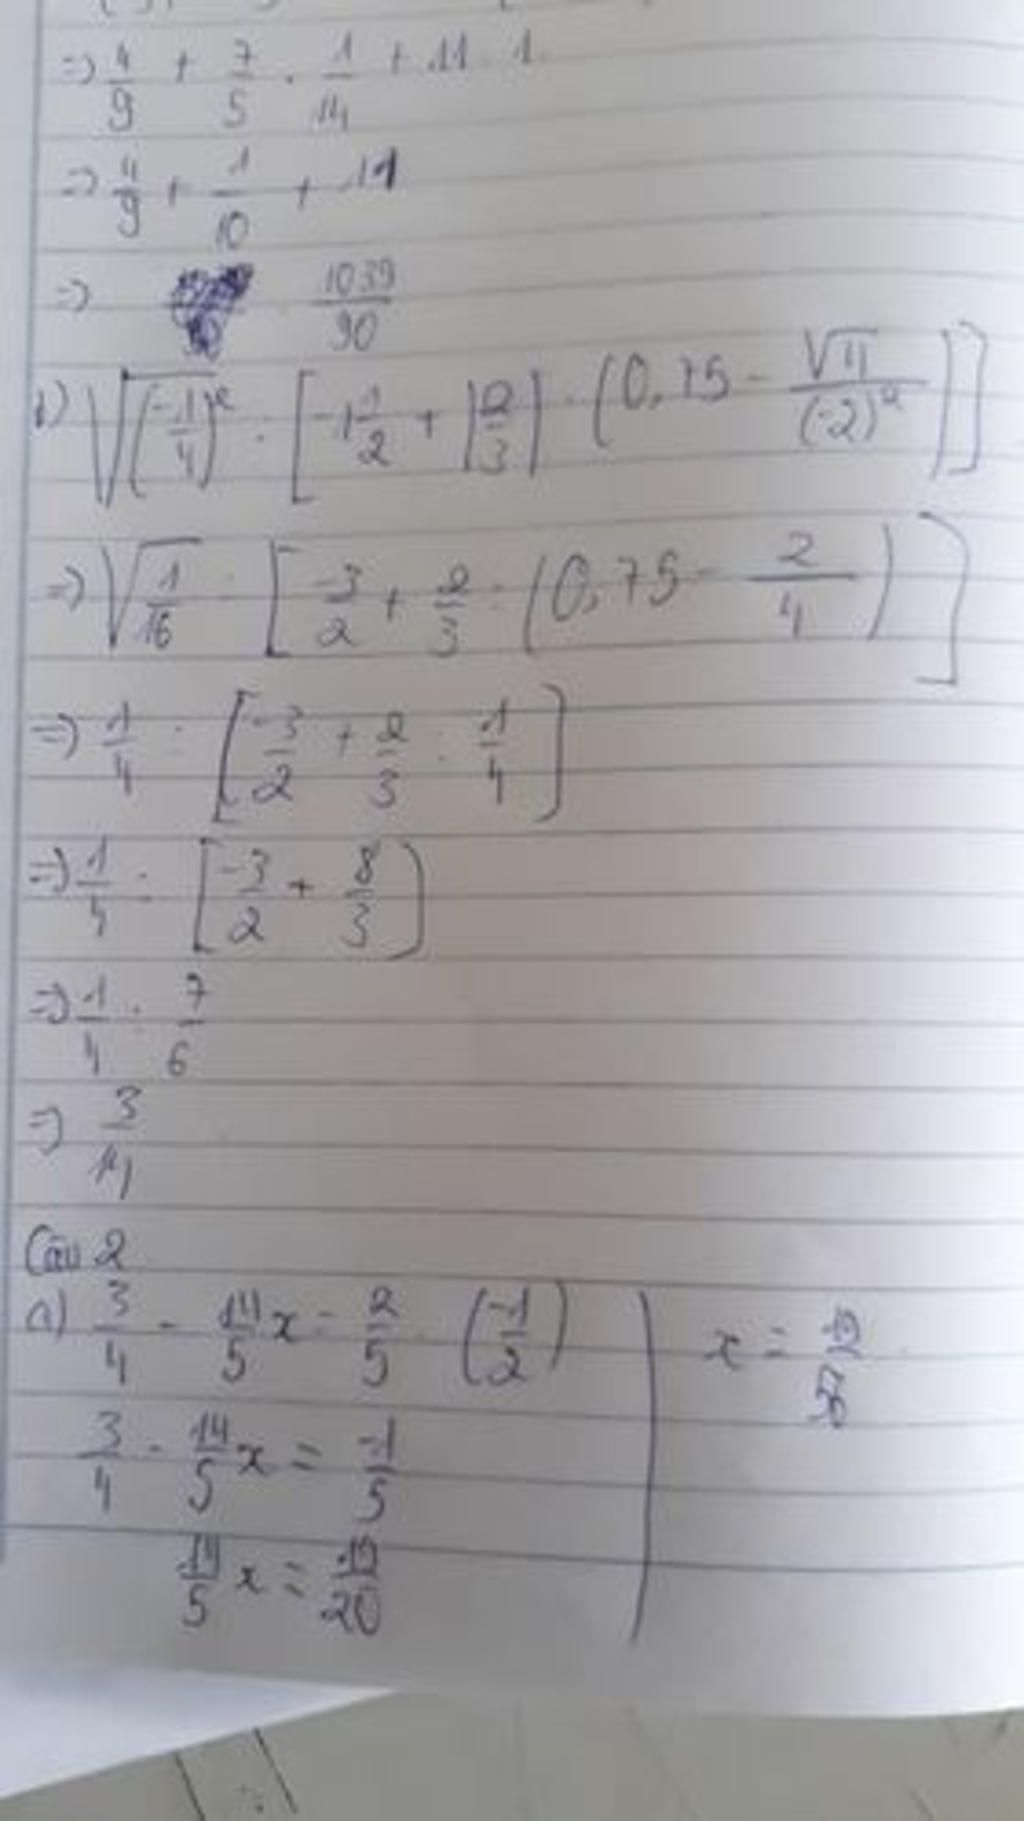 => 4/9 + 7/5 . 1/14 + 11 . 1
=> 4/9 + 1/10 + 11
=> 1039/90
b) √((-1/4)²) : [-1 1/2 + |2/3| : (0,75 - √4/(-2)²)]
=> √(1/16) : [-3/2 + 2/3 : (0,75 - 2/4)]
=> 1/4 : [-3/2 + 2/3 : 1/4]
=> 1/4 : [-3/2 + 8/3]
=> 1/4 : 7/6
=> 3/14
Câu 2
a) 3/4 - 14/5 x = 2/5 . (-1/2)
3/4 - 14/5 x = -1/5
14/5 x = 19/20
x = 19/56